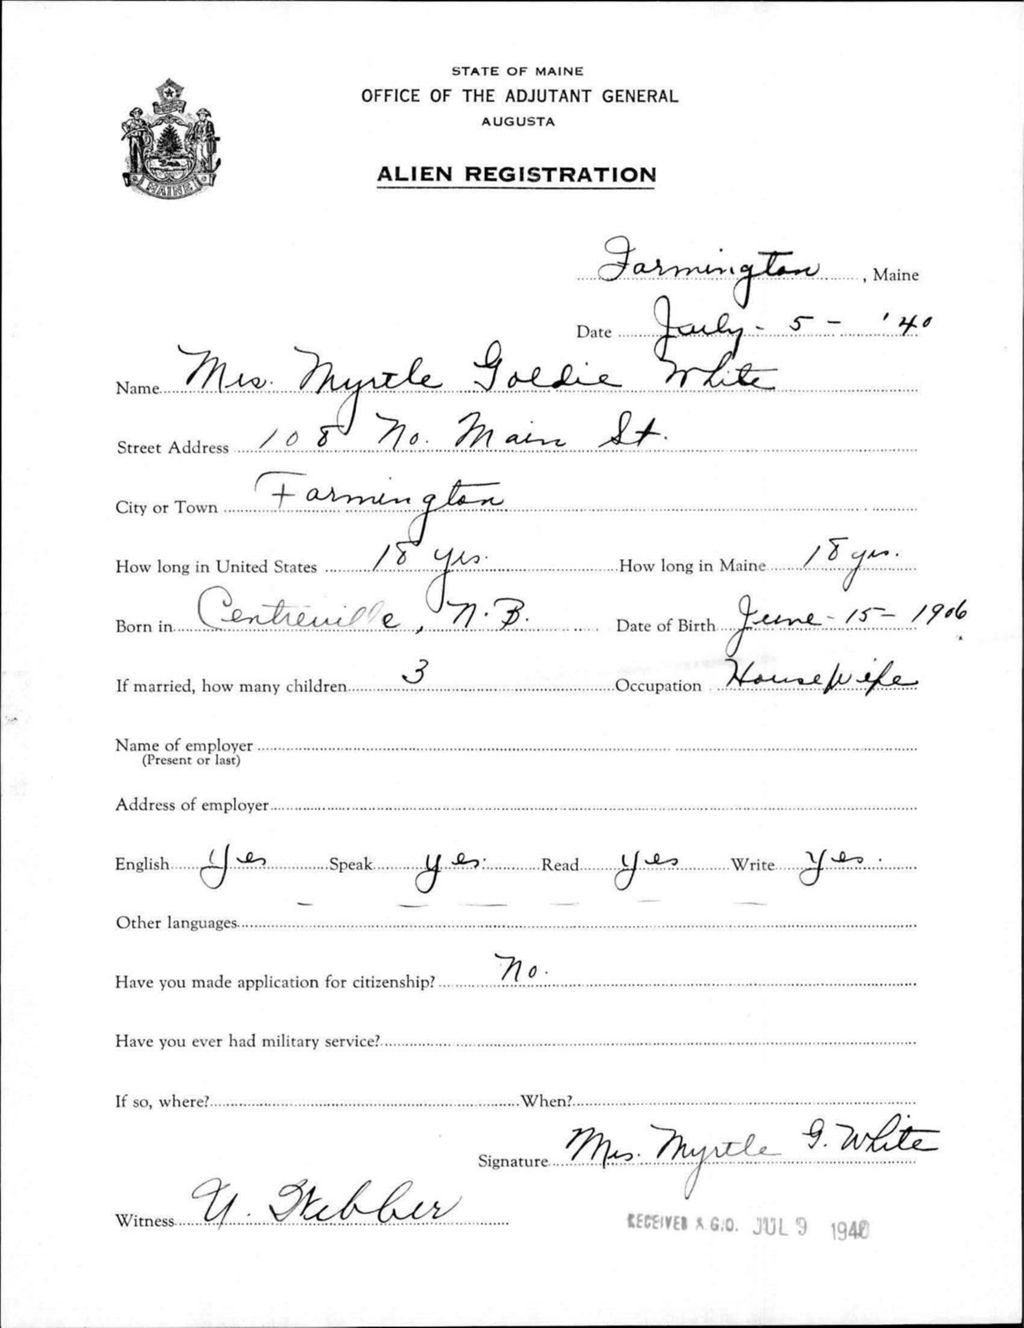 STATE OF MAINE
OFFICE OF THE ADJUTANT GENERAL
AUGUSTA
ALIEN REGISTRATION
MAINE
Farmington, Maine
Date July - 5 - '40
Name Mrs. Myrtle Goldie White
Street Address 108 No. Main St.
City or Town Farmington
How long in United States 18 yrs. How long in Maine 18 yrs.
Born in Centreville, N.B. Date of Birth June - 15 - 1906.
If married, how many children 3 Occupation Housewife
Name of employer
(Present or last)
Address of employer
English Yes Speak yes. Read yes Write yes.
Other languages
Have you made application for citizenship? No.
Have you ever had military service?
If so, where? When?
Signature Mrs. Myrtle G. White
Witness Webber
RECEIVED A.G.O. JUL 9 1940